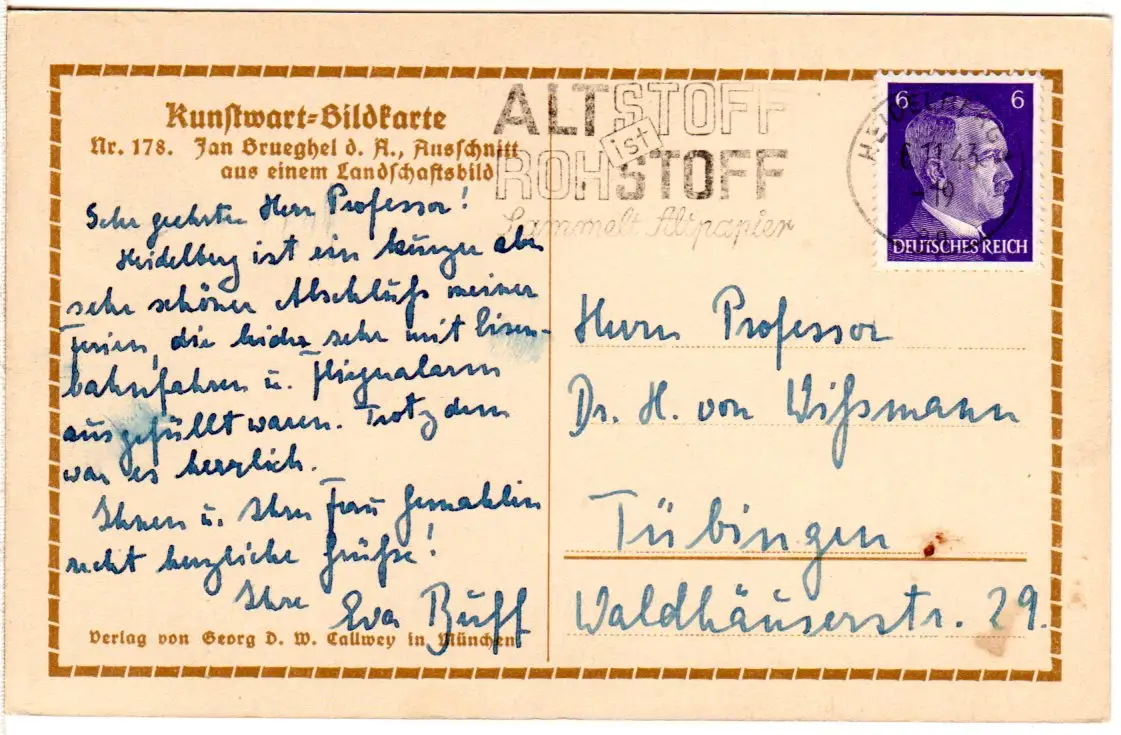 Kunstwart-Bildkarte
Nr. 178. Jan Brueghel d. A., Ausschnitt
aus einem Landschaftsbild
Sehr geehrter Herr Professor!
Heidelberg ist ein kurzer aber
sehr schöner Abschluß meiner
Ferien, die leider sehr mit Eisen-
bahnfahren u. Fliegeralarm
ausgefüllt waren. Trotzdem
war es herrlich.
Ihnen u. Ihrer Frau Gemahlin
recht herzliche Grüße!
Ihre Eva Buff
Verlag von Georg D. W. Callwey in München
ALTSTOFF
ist
ROHSTOFF
Sammelt Altpapier
HEIDELBERG
6.11.43
-19
6 6
DEUTSCHES REICH
Herrn Professor
Dr. H. von Wißmann
Tübingen
Waldhäuserstr. 29.